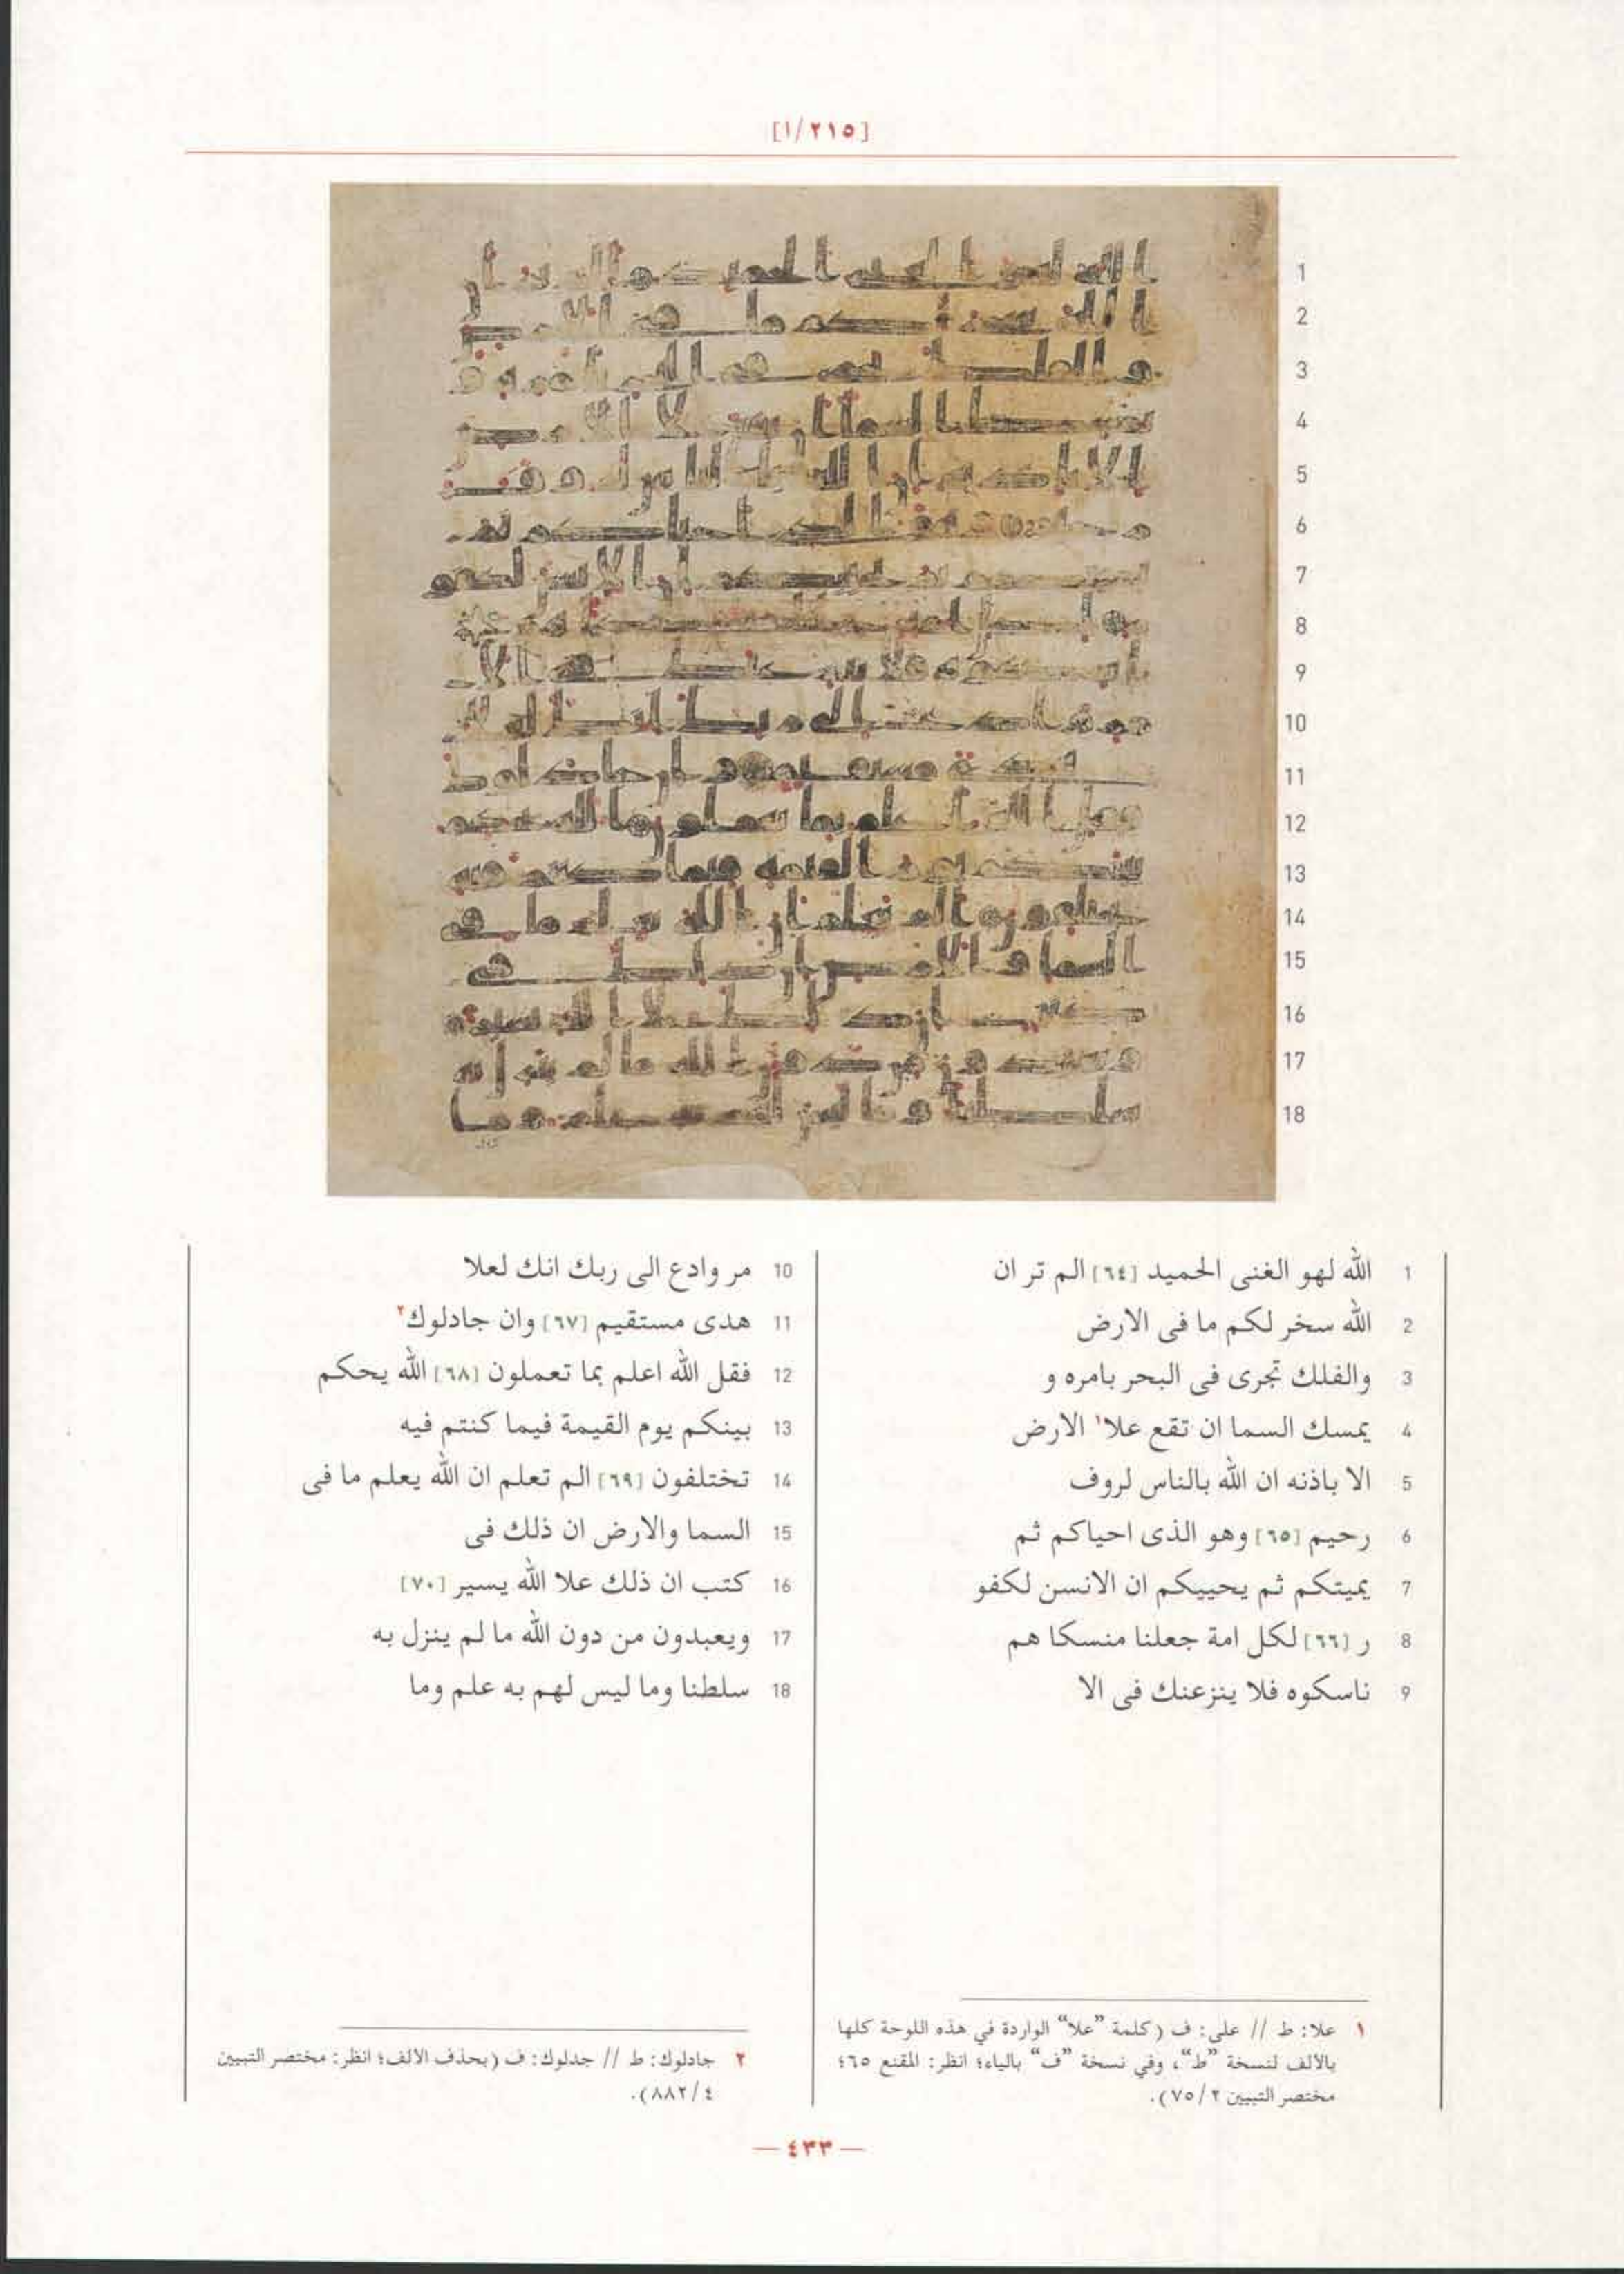 [١/٢١٥]
1 الله لهو الغنى الحميد [٦٤] الم تر ان
2 الله سخر لكم ما فى الارض
3 والفلك تجرى فى البحر بامره و
4 يمسك السما ان تقع علا١ الارض
5 الا باذنه ان الله بالناس لروف
6 رحيم [٦٥] وهو الذى احياكم ثم
7 يميتكم ثم يحييكم ان الانسن لكفو
8 ر [٦٦] لكل امة جعلنا منسكا هم
9 ناسكوه فلا ينزعنك فى الا
10 مر وادع الى ربك انك لعلا
11 هدى مستقيم [٦٧] وان جادلوك٢
12 فقل الله اعلم بما تعملون [٦٨] الله يحكم
13 بينكم يوم القيمة فيما كنتم فيه
14 تختلفون [٦٩] الم تعلم ان الله يعلم ما فى
15 السما والارض ان ذلك فى
16 كتب ان ذلك علا الله يسير [٧٠]
17 ويعبدون من دون الله ما لم ينزل به
18 سلطنا وما ليس لهم به علم وما
١ علا: ط // على: ف (كلمة "علا" الواردة في هذه اللوحة كلها
بالألف لنسخة "ط"، وفي نسخة "ف" بالياء؛ انظر: المقنع ٦٥؛
مختصر التبيين ٧٥/٢).
٢ جادلوك: ط // جدلوك: ف (بحذف الألف؛ انظر: مختصر التبيين
٨٨٢/٤).
— ٤٣٣ —